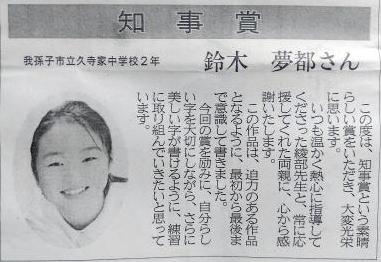 知事賞
我孫子市立久寺家中学校2年
鈴木 夢都さん
この度は、知事賞という素晴
らしい賞をいただき、大変光栄
に思います。
いつも温かく熱心に指導して
くださった綾部先生と、常に応
援してくれた両親に、心から感
謝いたします。
この作品は、迫力のある作品
となるように、最初から最後ま
で意識して書きました。
今回の賞を励みに、自分らし
い字を大切にしながら、さらに
美しい字が書けるように、練習
に取り組んでいきたいと思って
います。